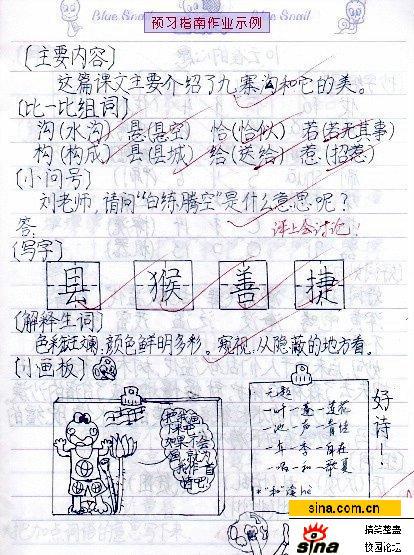 Blue Snail
Blue Snail
预习指南作业示例
(主要内容)
这篇课文主要介绍了九寨沟和它的美。
(比一比组词)
沟(水沟) 悬(悬空) 恰(恰似) 若(若无其事)
构(构成) 县(县城) 给(送给) 惹(招惹)
(小问号)
刘老师,请问“白练腾空”是什么意思呢?
答: 课上会讨论!
(写字)
县 猴 善 捷
(解释生词)
色彩斑斓:颜色鲜明多彩。窥视:从隐蔽的地方看。
(小画板)
把我画
下来吧,
如果不会
画,就为
我作一首
诗吧!
无题
一叶一蓬一莲花
一池一声一青蛙
一年一季一自在
一唱一和一华夏
*“和”读hè
好诗!
sina.com.cn
sina
搞笑整蛊
校园论坛